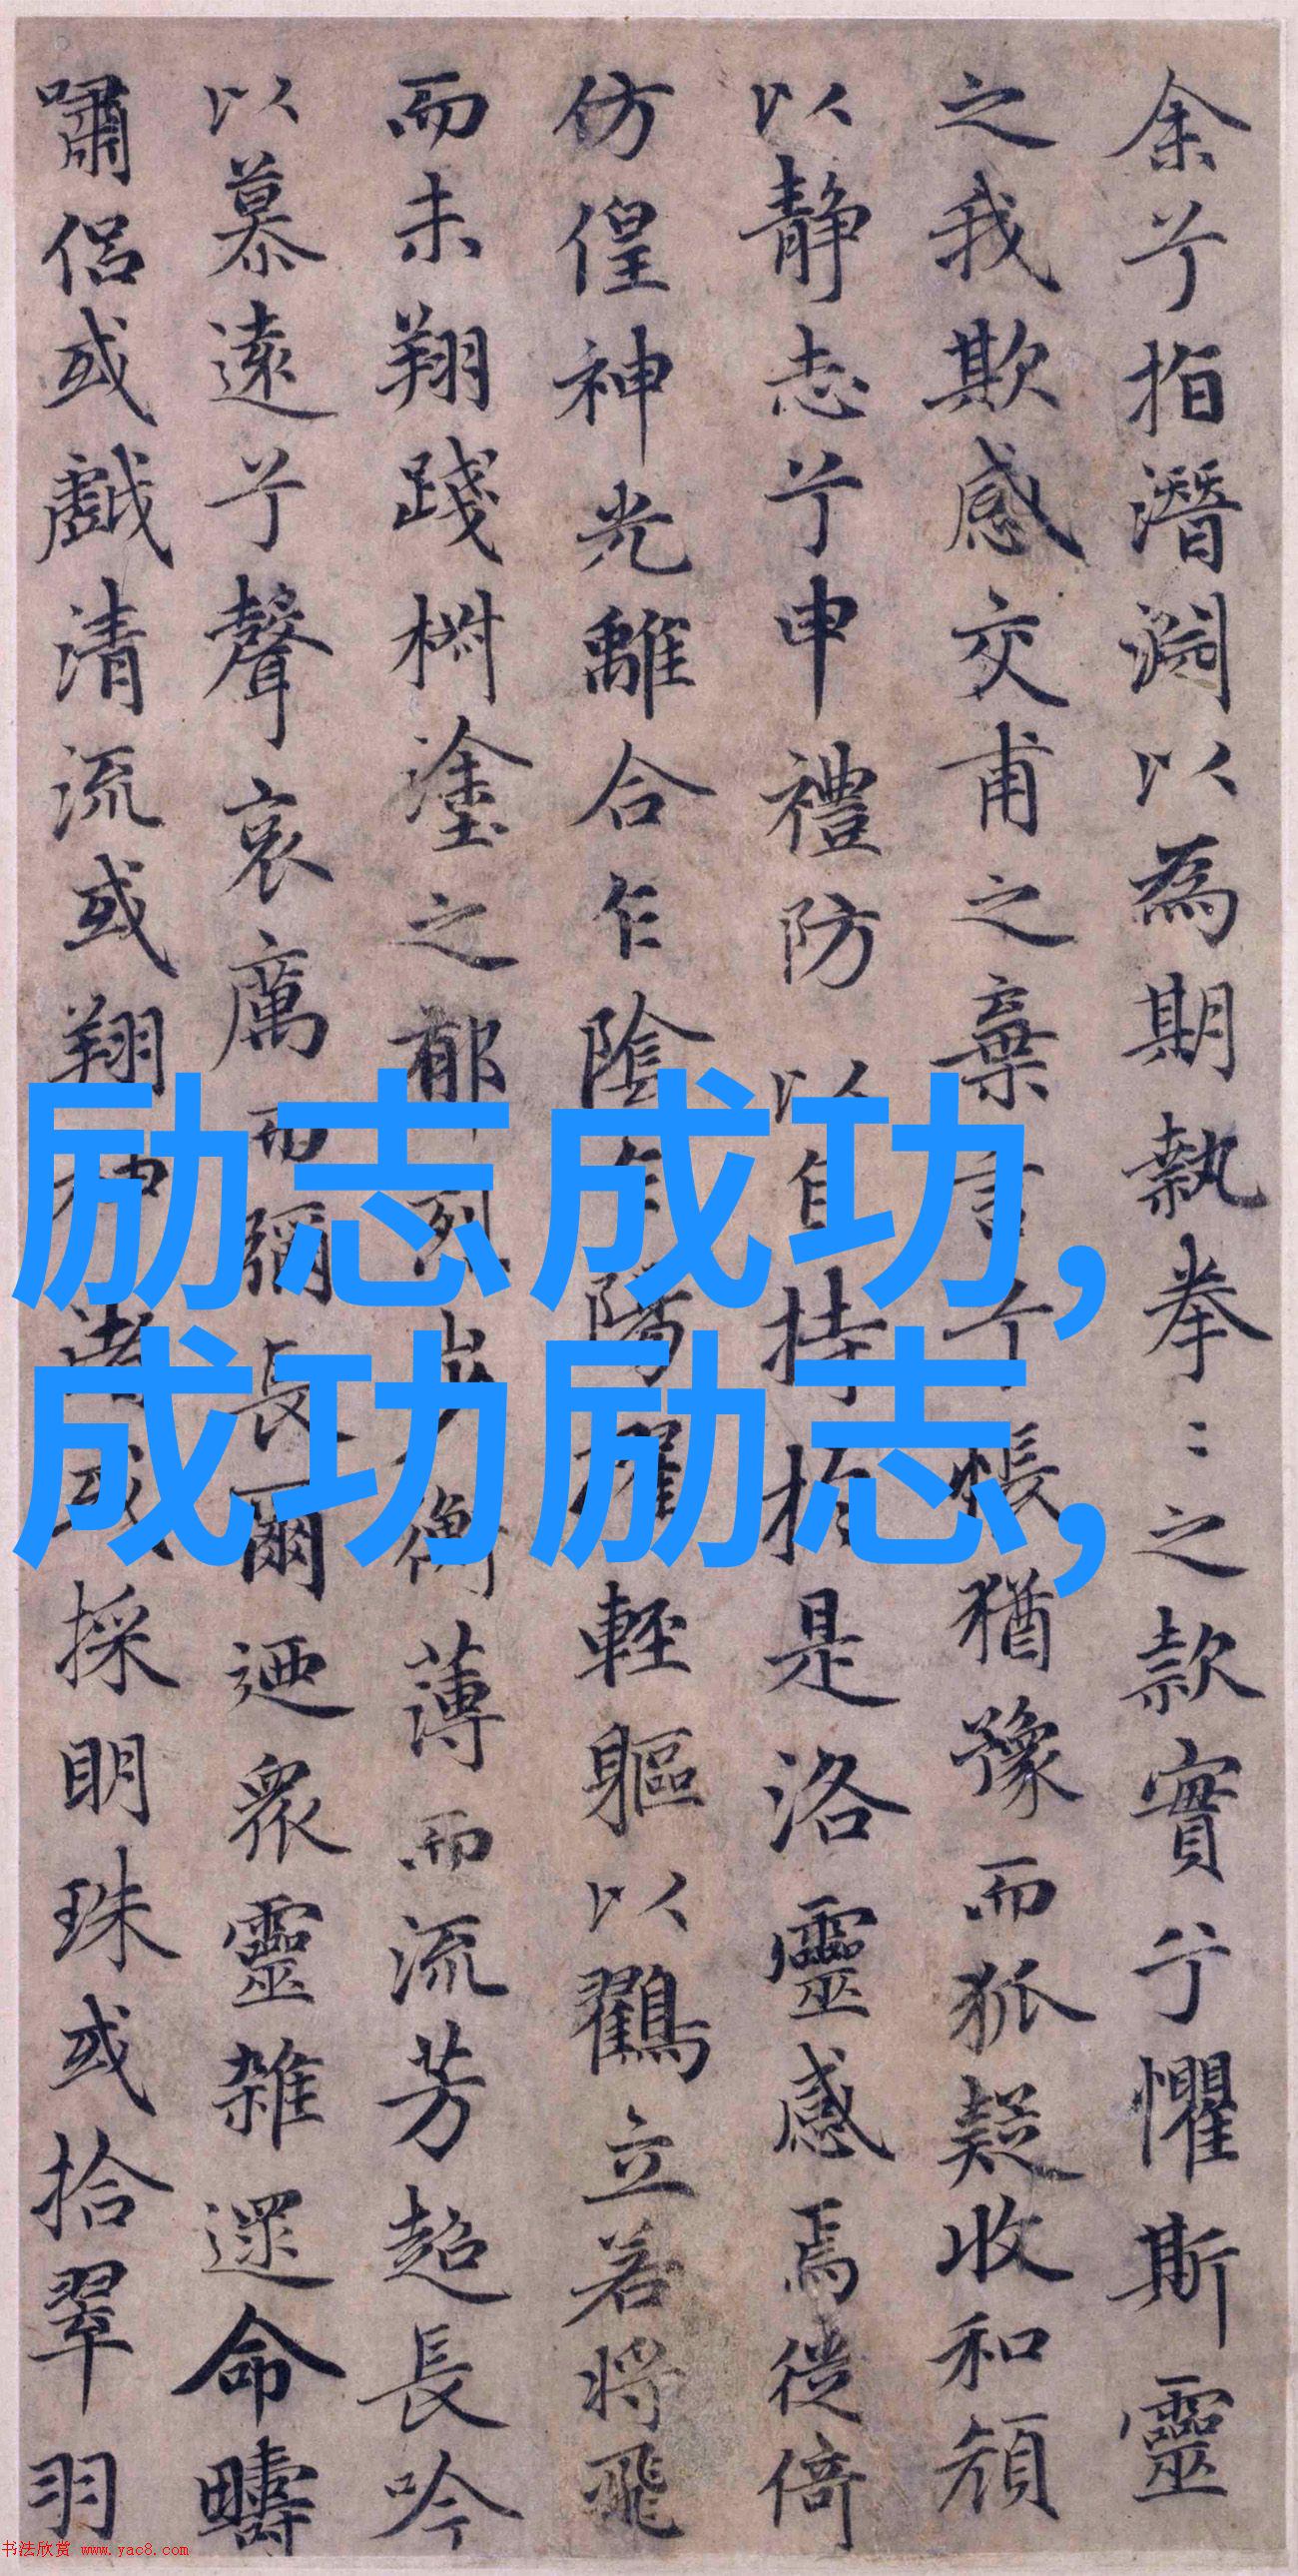 余兮指潛淵以為期執拳〻之款實兮懼斯靈
之我欺感交甫之棄言兮悵猶豫而狐疑收和顏
以靜志兮申禮防以自持於是洛靈感焉徙倚
仿偟神光離合乍陰乍陽擢輕軀以鶴立若將飛
而未翔踐椒塗之郁烈步衡薄而流芳超長吟
以慕遠兮聲哀厲而彌長爾迺眾靈雜遝命疇
嘯侶或戲清流或翔神渚或採明珠或拾翠羽
励志成功,
成功励志,
书法欣赏 www.yac8.com